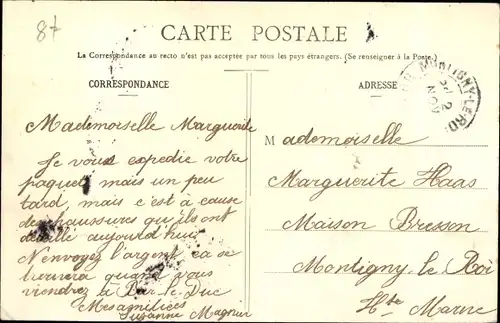 87
CARTE POSTALE
La Correspondance au recto n'est pas acceptée par tous les pays étrangers. (Se renseigner à la Poste.)
CORRESPONDANCE
Mademoiselle Marguerite
Je vous expédie votre
paquet mais un peu
tard, mais c'est à cause
des chaussures qu'ils ont
aujourd'hui
N'envoyez l'argent ça se
quand vous
viendrez à Bar-le-Duc
Mes amitiées
Suzanne Magnin
ADRESSE
MONTIGNY-LE-ROI
2
NOV
Mademoiselle
Marguerite Haas
Maison Bresson
Montigny-le Roi
Hte Marne